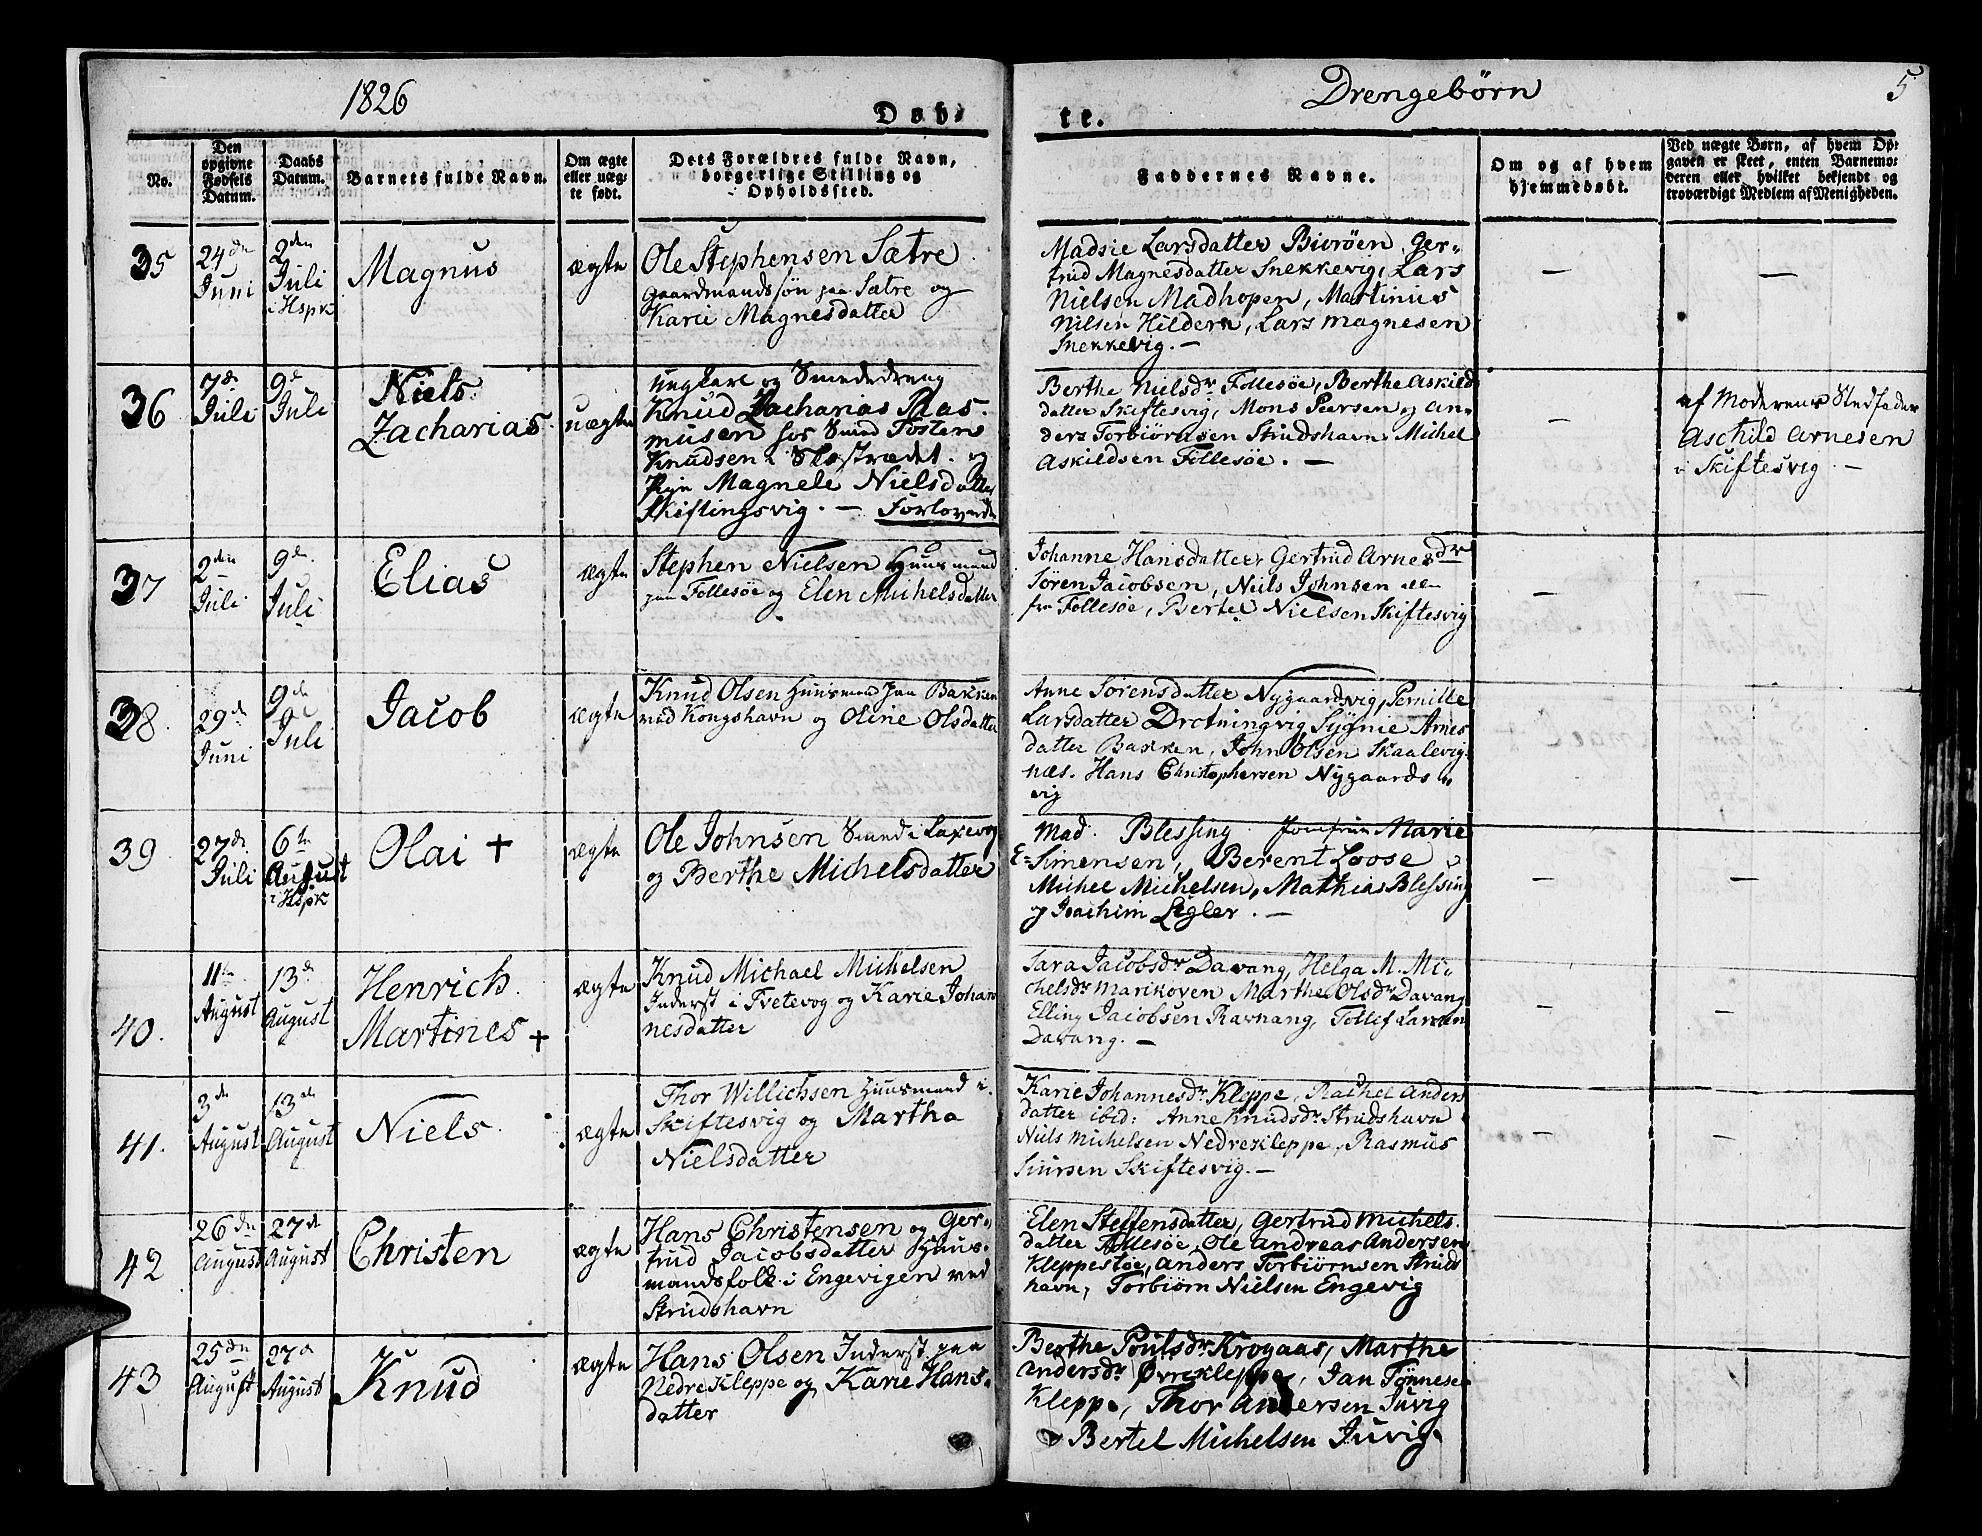 1826
Døb-
te.
Drengebørn
5
No.
Den
opgivne
Fødsels
Datum.
Daabs
Datum.
Barnets fulde Navn.
Om ægte
eller uæg-
te født.
Dets Forældres fulde Navn,
borgerlige Stilling og
Opholdssted.
Faddernes Navne.
Om og af hvem
hjemmedøbt.
Ved uægte Børn, af hvem Op-
gaven er skeet, enten Barnemo-
deren eller hvilket bekjendt og
troværdigt Medlem af Menigheden.
35
24de
Juni
2den
Juli
i Hspk
Magnus
ægte
Ole Stephensen Sætre
Gaardmandssøn paa Sætre og
Karie Magnesdatter
Madsie Larsdatter Bivröen, Ger-
trud Magnesdatter Snekkevig, Lars
Nielsen Madhopen, Martinius
Nilsen Hildern, Lars Magnesen
Snekkevig. —
—
—
36
7de
Juli
9de
Juli
Niels
Zacharias
uægte
Ungkarl og Smededreng
Knud Zacharias Ras-
musen hos Smed Tosten
Knudsen i Skostrædet. og
Pige Magnele Nielsdatter
Skiftingsvig. — Forlovede
Berthe Nielsdr Follesøe, Berthe Askild
datter Skiftesvig, Mons Peersen og An-
ders Torbiörnsen Strudshavn, Michel
Askildsen Follesøe. —
—
af Moderens Stedfader
Aschild Arnesen
i Skiftesvig. —
37
2den
Juli
9de
Juli
Elias
ægte
Stephen Nielsen Huusmand
paa Follesöe og Elen Michelsdatter
Johanne Hansdatter, Gertrud Arnesdr
Sören Jacobsen, Niels Johnsen alle
fra Follesöe, Bertel Nielsen Skiftesvig
—
—
38.
29de
Juni
9de
Juli
Jacob
ægte
Knud Olsen Huusmand paa Bakken
ved Kongshavn og Oline Olsdatter
Anne Sörensdatter Nygaardsvig, Pernille
Larsdatter Drotningvig, Sygnie Arnes
datter Bakken, John Olsen Skaalevig-
næs. Hans Christophersen Nygaards-
vig
—
—
39.
27de
Juli
6te
August
i Hspk
Olai +
ægte
Ole Johnsen Smed i Laxevog
og Berthe Michelsdatter
Mad. Blessing Jomfrue Marie
E. Simensen, Berent Loose
Michel Michelsen, Mathias Blessing
og Joachim Ligler. —
—
—
40.
11te
August
13de
August
Henrich
Martines +
ægte
Knud Michael Michelsen
Inderst i Tvetevog og Karie Johan
nesdatter
Sara Jacobsdr Davang, Helga M. Mi-
chelsdr Marikoven Marthe Olsdr Davang
Elling Jacobsen Ravnang, Tollef Larsen
Davang. —
—
—
41.
3de
August
13de
August
Niels
ægte
Thor Willichsen Huusmand i
Skiftesvig og Martha
Nielsdatter
Karie Johannesdr Kleppe, Rachel Anders
datter ibid: Anne Knudsdr Strudshavn
Niels Michelsen Nedrekleppe, Rasmus
Siursen Skiftesvig. —
—
—
42
26de
August
27de
August
Christen
ægte
Hans Christensen og Ger-
trud Jacobsdatter Huus-
mandsfolk i Engevigen ved
Strudshavn
Elen Steffensdatter, Gertrud Michels
datter Follesøe, Ole Andreas Andersen
Kleppestøe, Anders Torbiörnsen Struds
havn, Torbiörn Nielsen Engevig
43
25de
August
27de
August
Knud
ægte
Hans Olsen Inderst paa
Nedre Kleppe og Karie Hans-
datter
Berthe Poulsdr Krogaas, Marthe
Andersdr Øvrekleppe, Jan Tönnesen
Kleppe, Thor Andersen Juvig
Bertel Michelsen Juvig.